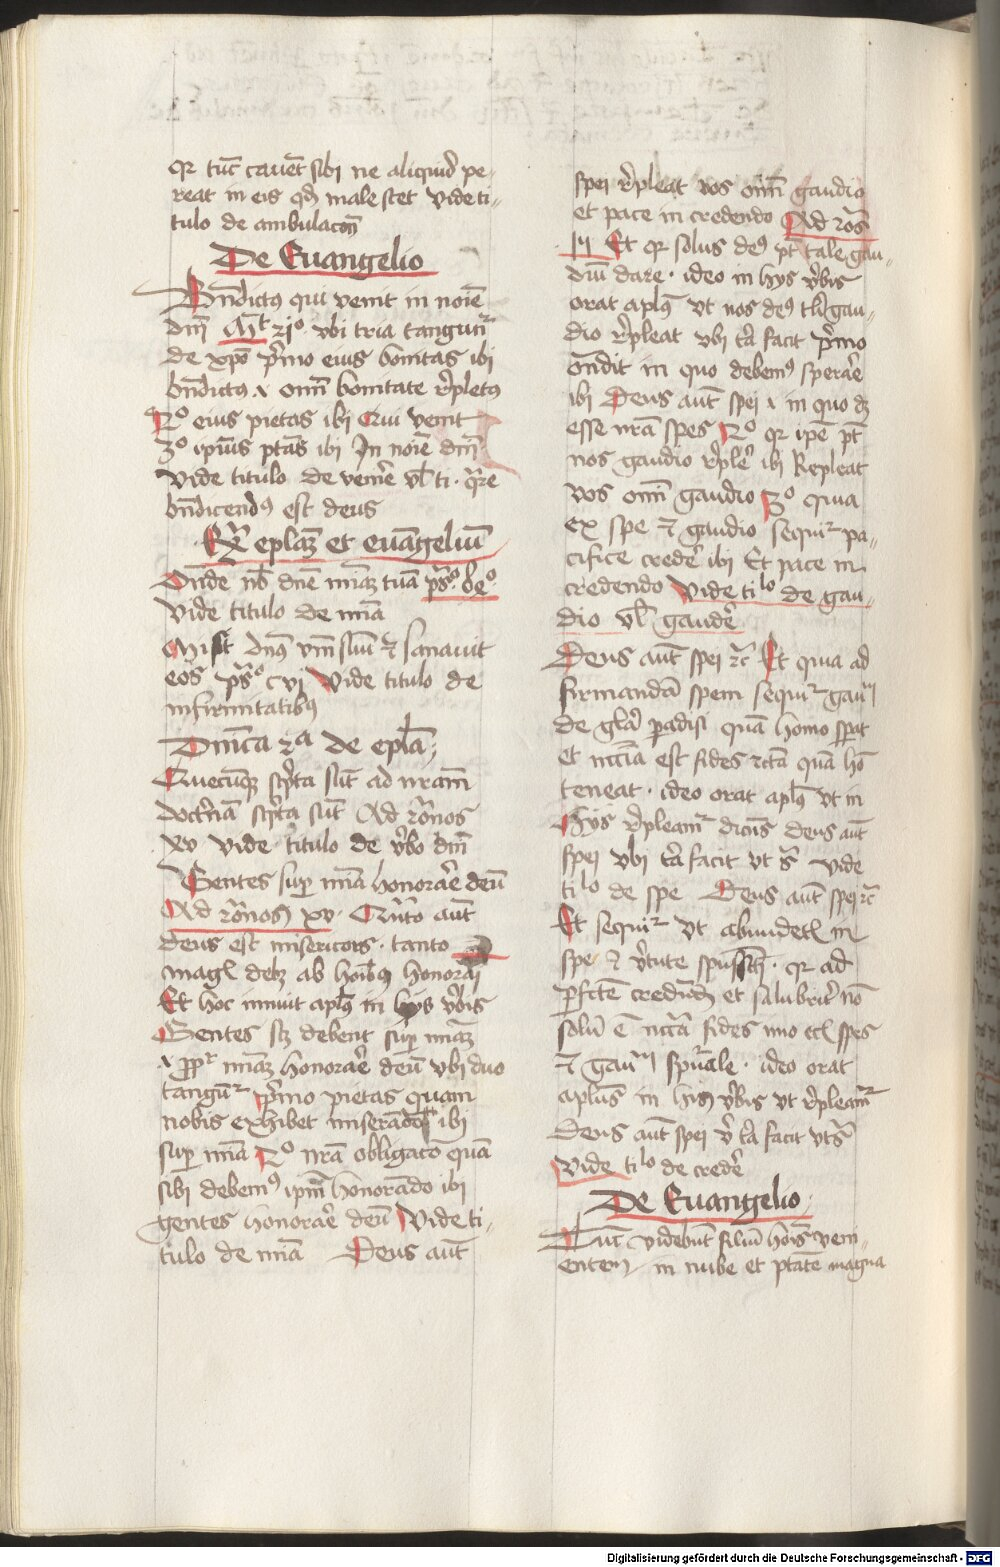 qr tūc caveāt sibi ne aliquid pe-
reat in eis qd male stet vide ti-
tulo de ambulacōn
De Euangelio
Bn̄dictus qui venit in noīe
dm̄ Mt xxiº vbi tria tangunt᷑
de xpō p̄mo eius bonitas ibi
bn̄dictus .i. om̄i bonitate r̄pletus
2º eius pietas ibi Qui venit
3º ipius ptās ibi In noīe dm̄
vide titulo de veni͞re vl ti. q̄re
bn̄dicendꝰ est deus
Ex epl̄a et euāgeliū
Onde nob̄ dn̄e mi͞am tuā ps̄º
vide titulo de mīa
Misit dn̄s v̄m suū et sanauit
eos ps̄º cvi Vide titulo de
infirmitatibꝰ
Dn̄ica 2a de epl̄a
Quecūqꝫ sc̄pta sūt ad nr̄am
doct̄nā sc̄pta sūt Ad ro̅nos
xv vide titulo de v̄bo dm̄
Gentes sup mīa honorar̄e deū
Ad ro̅nos xv. Qn̄to aūt
deus est misericors. tanto
mag̅ debꝫ ab ho̅ibꝰ honorari
Et hoc innuit apl̄s in hys v̄bis
Gentes sꝫ debent sup mi͞am
.i. ꝓpt̄ mi͞am honorar̄e deū vbi duo
tangūt᷑ p̄mo pietas quam
nobis exhibet miserādo ibi
sup mīa 2º nr̄a obligatō quā
sibi debemꝰ ip̄m honorādo ibi
gentes honorar̄e deū Vide ti-
tulo de mīa Deus aūt
spei r̄pleat vos om̄i gaudio
et pace in credendo Ad ro̅s
Et qr solus deꝰ pt̄ tale gau-
diū dare. ideo in hys v̄bis
orat apl̄s vt nos deꝰ tli gau-
dio r̄pleat vbi t̄a facit p̄mo
on̄dit in quo debemꝰ sperar̄e
ibi Deus aūt spei .i. in quo dꝫ
esse nr̄a spes 2º qr ip̄e pt̄
nos gaudio r̄pler̄e ibi Repleat
vos om̄i gaudio 3º quia
ex spe et gaudio sequit᷑ pa-
cifice creder̄e ibi Et pace in
credendo Vide tilo de gau-
dio vl gauder̄e
Deus aūt spei rc̄ Et quia ad
firmandā spem sequit᷑ gauᵐ
de gl̄a padisi quā homo sperat
et nc̄ia est fides rcta quā ho̅
teneat. ideo orat apl̄s vt in
hys r̄pleam᷑ dicēs deus aūt
spei vbi t̄a facit vt s̄ vide
tilo de spe Deus aūt spei rc̄
Et sequit᷑ vt abundetis in
spe et v̄tute spūssc̄ti. qr ad
ꝑfc̄te credendū et salubrit̄ nō
solū ē nc̄ia fides imo ecl̄ spes
et gauᵐ spūale. ideo orat
aplūs in his v̄bis vt r̄pleam᷑
Deus aūt spei v̄ t̄a facit vt s̄
Vide tilo de creder̄e
De Euangelio
Tūc videbūt filiū ho̅is veni-
entem in nube et ptāte magna
Digitalisierung gefördert durch die Deutsche Forschungsgemeinschaft - DFG